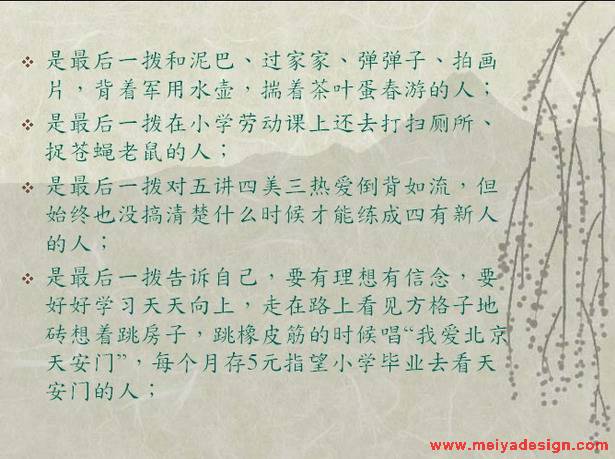 是最后一拨和泥巴、过家家、弹弹子、拍画
片，背着军用水壶，揣着茶叶蛋春游的人；
是最后一拨在小学劳动课上还去打扫厕所、
捉苍蝇老鼠的人；
是最后一拨对五讲四美三热爱倒背如流，但
始终也没搞清楚什么时候才能练成四有新人
的人；
是最后一拨告诉自己，要有理想有信念，要
好好学习天天向上，走在路上看见方格子地
砖想着跳房子，跳橡皮筋的时候唱“我爱北京
天安门”，每个月存5元指望小学毕业去看天
安门的人；
www.meiyadesign.com